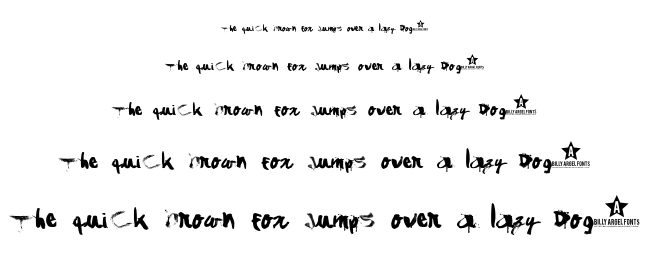 The quick brown fox jumps over a lazy Dog BILLY ARGEL FONTS
The quick brown fox jumps over a lazy Dog A BILLY ARGEL FONTS
The quick brown fox jumps over a lazy Dog A BILLY ARGEL FONTS
The quick brown fox jumps over a lazy Dog A BILLY ARGEL FONTS
The quick brown fox jumps over a lazy Dog A BILLY ARGEL FONTS